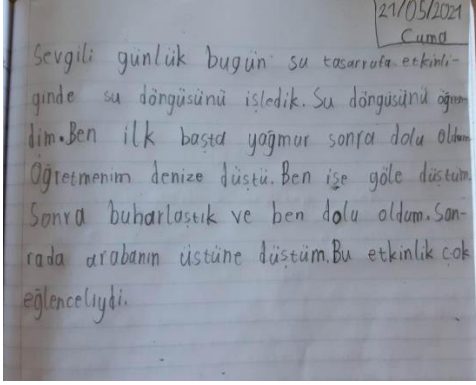 21/05/2021
Cuma
Sevgili günlük bugün su tasarrufu etkinli-
ginde su döngüsünü işledik. Su döngüsünü öğren
dim.Ben ilk başta yağmur sonra dolu oldum
Öğretmenim denize düştü. Ben işe göle düştüm.
Sonra buharlaştık ve ben dolu oldum.Son-
rada arabanın üstüne düştüm.Bu etkinlik çok
eğlenceliydi.